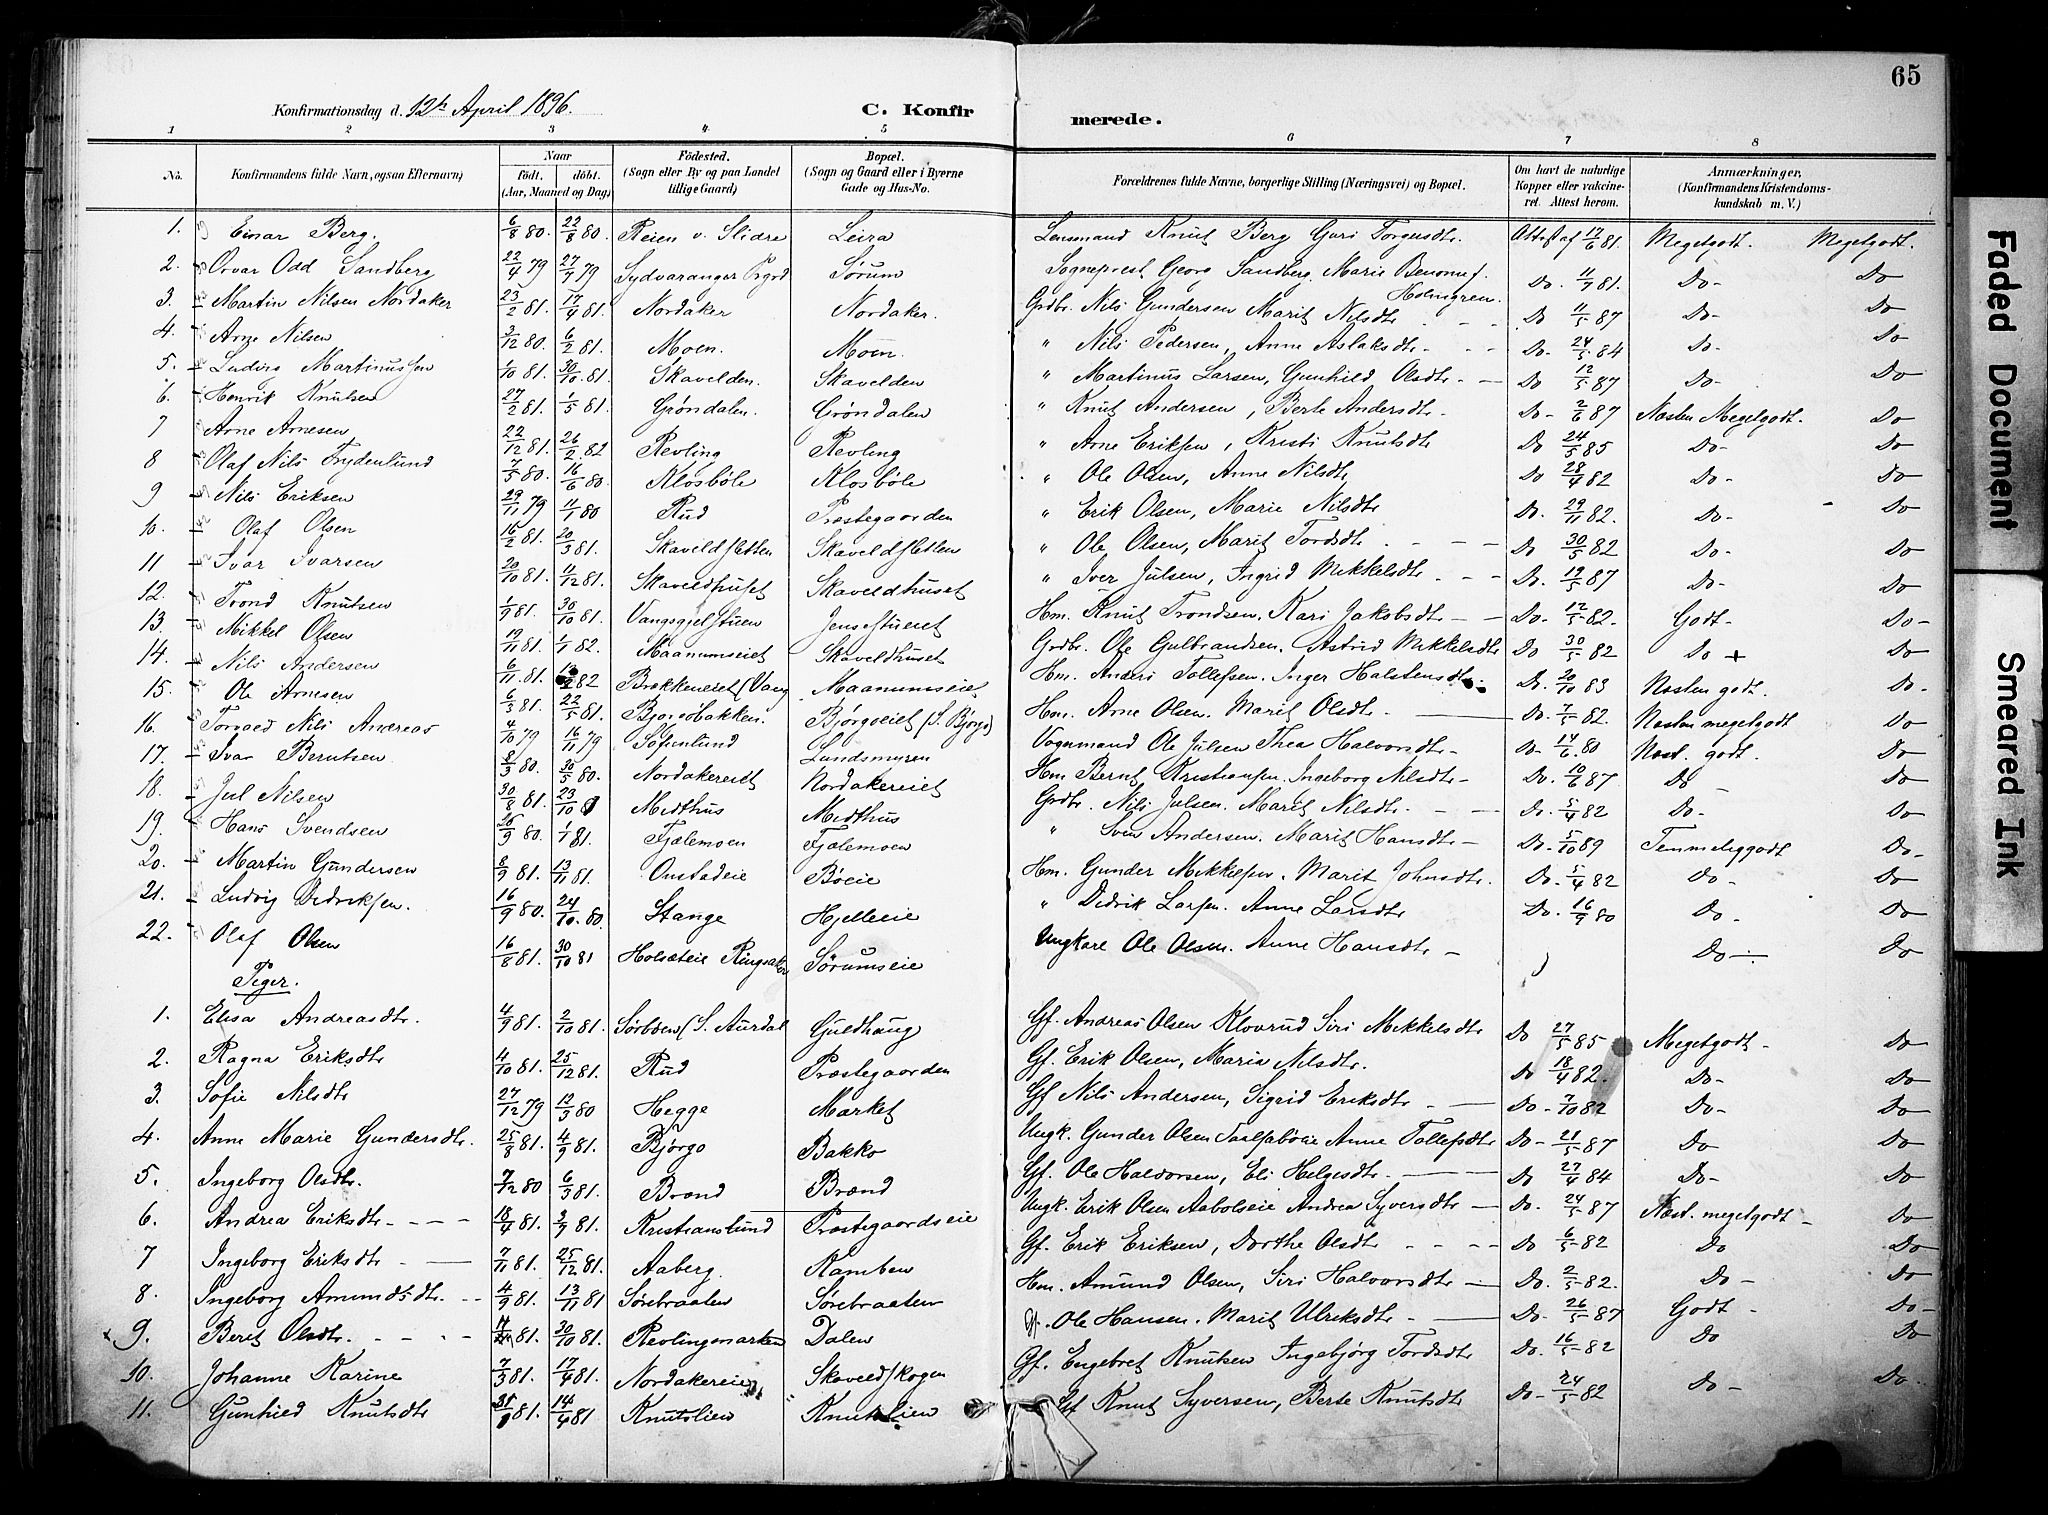 65
Konfirmationsdag d. 12te April 1896.
C. Konfirmerede.
1 2 3 4 5 6 7 8
No. Konfirmandens fulde Navn, ogsaa Efternavn) Naar født. døbt. (Aar, Maaned og Dag) Fødested. (Sogn eller By og paa Landet tillige Gaard) Bopæl. (Sogn og Gaard eller i Byerne Gade og Hus-No. Forældrenes fulde Navne, borgerlige Stilling (Næringsvei) og Bopæl. Om havt de naturlige Kopper eller vakcineret. Attest herom. Anmærkninger, (Konfirmandens Kristendomskundskab m. V.)
1. Einar Berg. 6/8 80. 22/8 80. Reien v. Slidre Leira Lensmand Knut Berg Guri Torgersdtr. Attest af 17/6 81. Megetgodt. Megetgodt.
2. Orvar Odd Sandberg 22/4 79 27/7 79 Sydvaranger Prgrd Sørum Sogneprest Georg Sandberg. Marie Benonne f. Holmgren. Do. 11/9 81. Do- Do
3. Martin Nilsen Nordaker 23/2 81. 17/4 81. Nordaker Nordaker. Grdbr. Nils Gundersen Marit Nilsdtr. Do 11/5 87 Do- Do
4. Arne Nilsen 3/12 80. 6/2 81. Moen. Moen. " Nils Pedersen, Anne Aslaksdtr - Do- 24/5 84 Do- Do
5. Ludvig Martinussen 1/10 81. 30/10 81. Skavelden. Skavelden " Martinus Larsen, Gunhild Olsdtr - Do 12/5 87 Do- Do
6. Henrik Knutsen 27/2 81. 1/5 81. Grøndalen. Grøndalen " Knut Andersen, Berte Andersdtr - Do- 2/6 87 Næsten Megetgodt. Do
7 Arne Arnesen 22/12 81. 26/2 82 Revling Revling " Arne Eriksen, Kristi Knutsdtr Do 24/5 85 Do- Do
8 Olaf Nils Frydenlund 7/5 80. 16/6 80. Klosbøle Klosbøle " Ole Olsen, Anne Nilsdtr Do 28/4 82 Do- Do
9 Nils Eriksen 29/11 79 11/1 80 Rud Præstegaarden " Erik Olsen, Marie Nilsdtr Do. 29/11 82. Do- Do
10. Olaf Olsen 16/2 81. 20/3 81. Skaveldsletten Skaveldsletten " Ole Olsen, Marit Tordsdtr. Do 30/5 82 Do- Do
11 Ivar Ivarsen 20/10 81. 11/12 81. Skaveldhuset Skaveldhuset " Iver Julsen, Ingrid Mikkelsdtr. Do. 19/5 87 Do- Do
12. Trond Knutsen 1/9 81. 30/10 81. Vangsgjelstuen Jensestueiet Hm. Knut Trondsen. Kari Jakobsdtr - Do- 12/5 82. Godt- Do-
13. Mikkel Olsen 19/11 81. 1/1 82. Maanumseiet Skaveldhuset Grdbr. Ole Gulbrandsen. Astrid Mikkelsdtr Do 30/5 82 Do + Do
14. Nils Andersen 6/11 81. 82 Brækkeneiet (Vang Maanumseiet Hm. Anders Tollefsen. Inger Halstensdtr. Do. 20/10 83 Næsten godt. Do-
15. Ole Arnesen 6/3 81. 22/5 81. Bjørgobakken. Bjørgoeiet (S. Bjørgo) Hm. Arne Olsen. Marit Olsdtr. Do. 7/5 82. Næsten megetgodt Do
16. Torvaed Nils Andreas 4/10 79 16/11 79 Sofienlund Lundsmyren Vognmand Ole Julsen Thea Halvorsdtr - Do- 14/6. 80 Næst. godt. Do
17. Ivar Berntsen 8/3 80. 30/5 80. Nordakereiet Nordakereiet Hm Bernt Kristiansen. Ingeborg Nilsdtr - Do. 10/6 87 Do Do
18. Jul Nilsen 30/8 81. 23/10 Midthus Midthus Grdbr. Nils Julsen. Marit Nilsdtr. Do. 5/4 82 Do- Do
19. Hans Svendsen 26/9 80. 1/1 81. Fjælemoen Fjælemoen " Sven Andersen. Marit Hansdtr - Do- 5/10 89 Temmeliggodt Do-
20. Martin Gundersen 8/9 81. 13/11 81. Onstadeie Bøeie Hm. Gunder Mikkelsen. Marit Johnsdtr. Do. 5/4 82 Do- Do
21. Ludvig Didriksen. 16/9 80. 24/10. 80 Stange Hjelleeie " Didrik Larsen. Anne Larsdtr Do. 16/9 80 Do- Do
22. Olaf Olsen 16/8 81. 30/10 81 Holsæteie Ringsaker Sørumseie Ungkarl Ole Olsen. Anne Hansdtr - Do- Do
Piger.
1. Elisa Andreasdtr. 4/9 81. 2/10 81. Sørboen (S. Aurdal Guldhaug Gf. Andreas Olsen Klovrud Siri Mikkelsdtr Do 27/5 85 Megetgodt- Do
2. Ragna Eriksdtr 4/10 81. 25/12 81. Rud Præstegaarden Gf. Erik Olsen, Maria Nilsdtr. Do 18/4 82. Do- Do
3. Sofie Nilsdtr 27/12 79 12/9 80 Hegge Market Gf Nils Andersen, Sigrid Eriksdtr - Do- 7/10 82 Do- Do
4. Anne Marie Gundersdtr. 25/8 81. 4/9 81. Bjørgo Bakko Ungk. Gunder Olsen Anne Tollefsdtr Do- 21/5 87 Do Do
5. Ingeborg Olsdtr. 7/12 80 6/3 81. Brænd Brænd Gf. Ole Halvorsen, Eli Helgesdtr. Do 27/4 84 Do- Do
6. Andrea Eriksdtr - 18/4 81. 3/7 81. Kristianslund Præstegaardseie Ungk. Erik Olsen Aabolseie Andrea Syversdtr - Do. 24/5 87 Næst. megetgodt - Do
7 Ingeborg Eriksdtr - 7/11 81. 25/12 81. Aaberg. Kamben Gf. Erik Eriksen, Dorthe Olsdtr Do 6/5 82 Do Do
8. Ingeborg Amundsdtr. 4/9 81. 13/11 81 Sørebraaten Sørebraaten Hm. Amund Olsen, Siri Halvorsdtr - Do. 2/5 82. Do- Do
9. Berit Olsdtr. 81. 30/10 81. Revlingmarken Dalen Gf. Ole Hansen. Marit Ulriksdtr. Do. 26/5 87 Godt- Do-
10. Johanne Karine 7/3 81. 17/4 81. Nordakereie Skaveldskogen Gf. Engebret Knutsen Ingebjørg Tordsdtr Do. 16/5 82 Do Do
11. Gunhild Knutsdtr 31/1 81. 14/4 81 Knutslien Knutslien Gf Knut Syversen, Berte Knutsdtr Do- 24/5 82 Do- Do
Faded Document
Smeared Ink